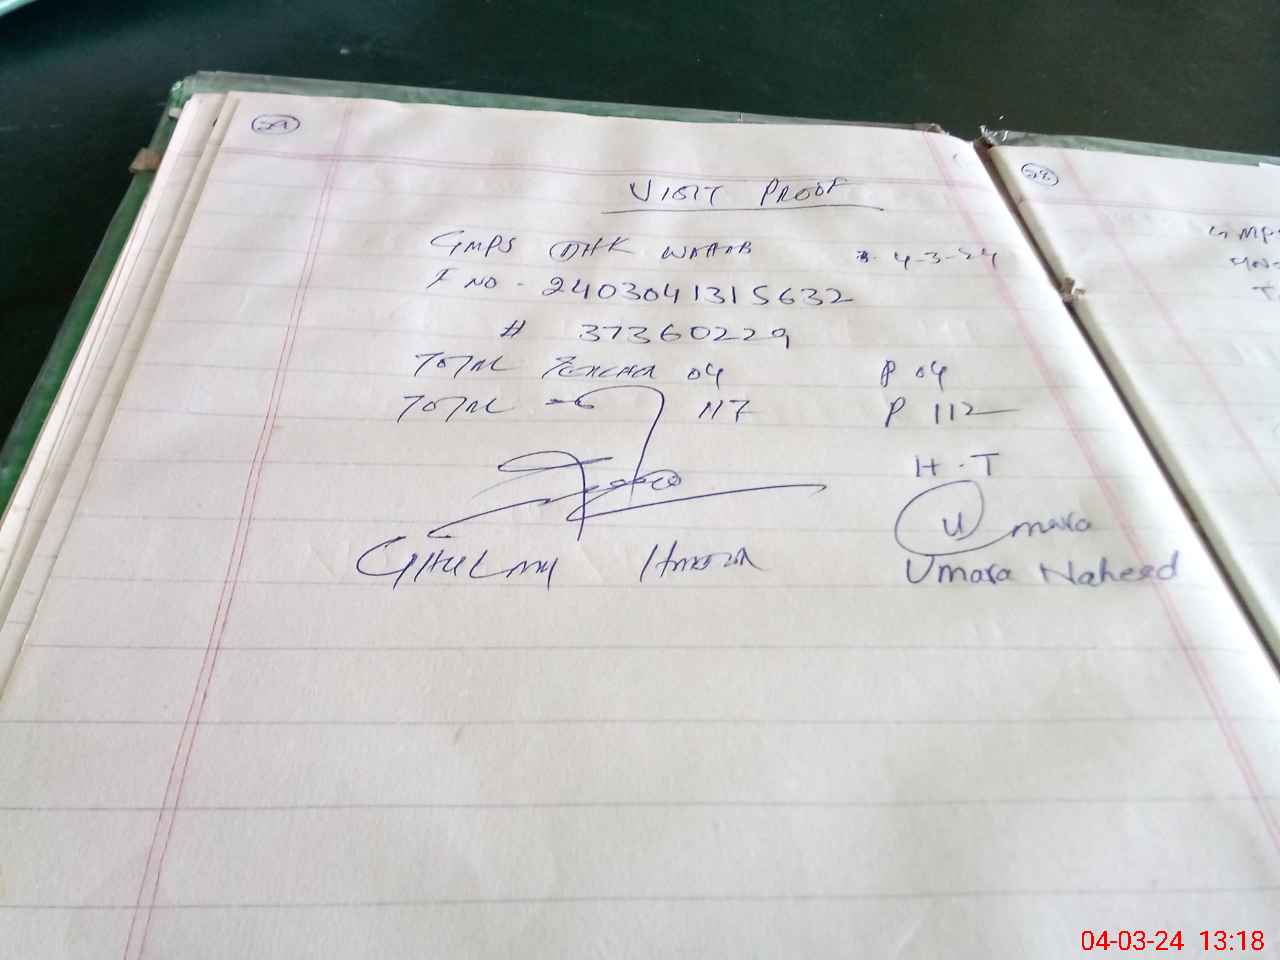 59
VISIT PROOF
GMPS DHK WAHAB 4-3-24
I NO - 2403041315632
# 37360229
TOTAL TEACHER 04 P 04
TOTAL 117 P 112
H.T
Umara
GHULAM Umara Naheed
58
GMPS
T
04-03-24 13:18